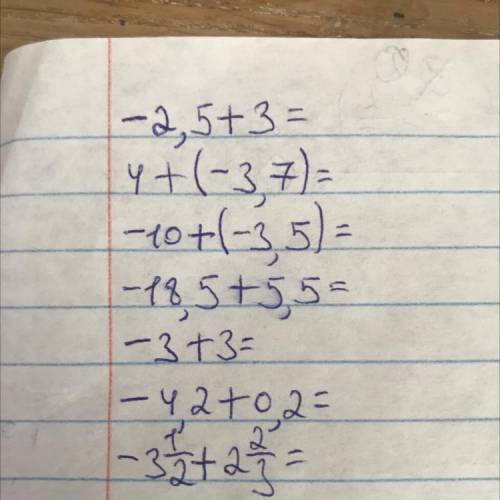 -2,5+3=
4+(-3,7)=
-10+(-3,5)=
-18,5+5,5=
-3+3=
-4,2+0,2=
-3 1/2+2 2/3=